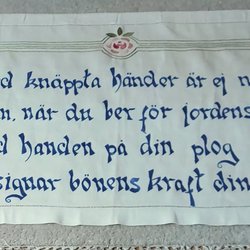 d knäppta händer är ej n
n, när du ber för jordens
d handen på din plog
signar bönens kraft din